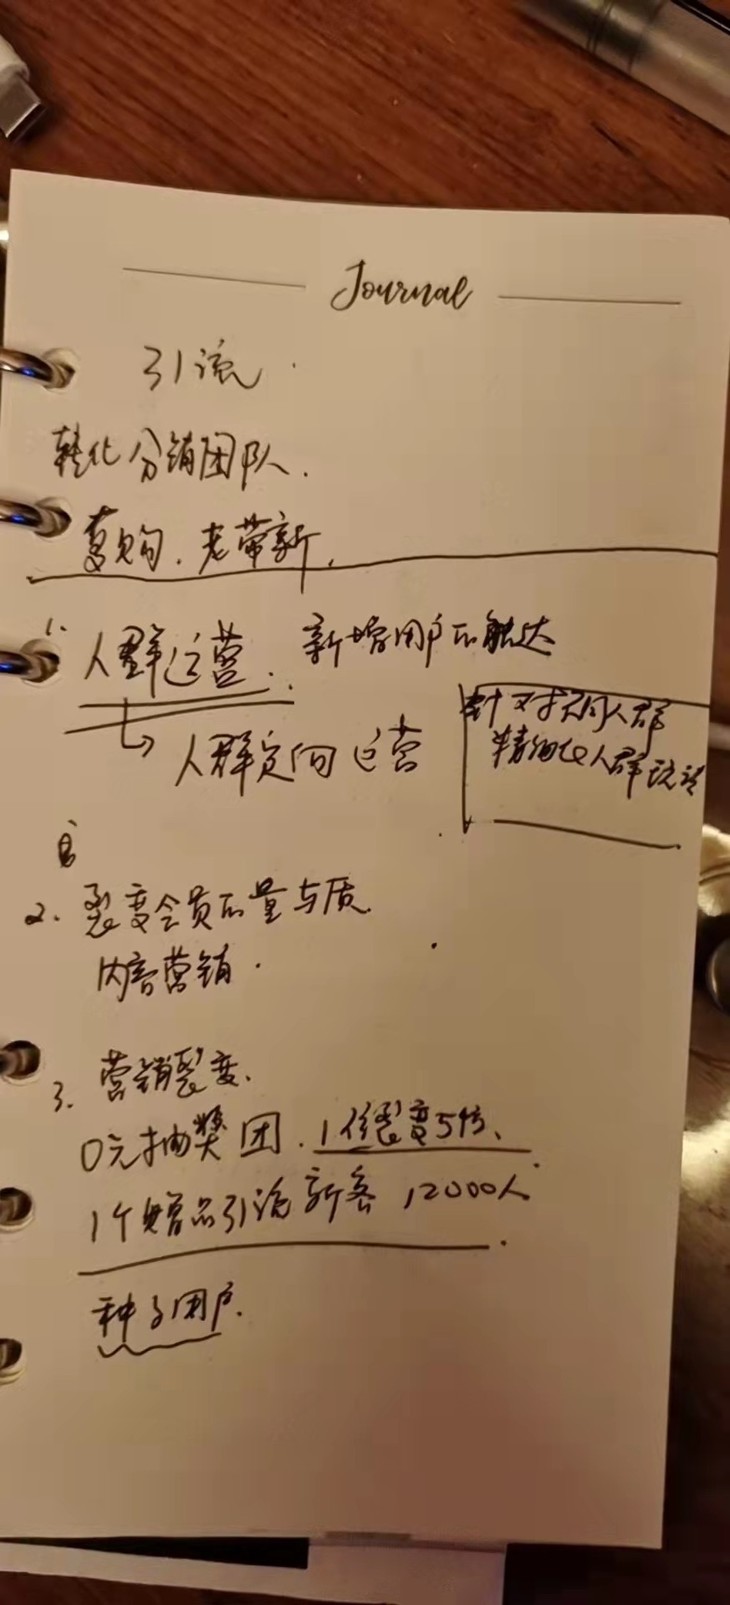 Journal
引流
转化分销团队.
复购.老带新.
1. 人群运营. 新增用户的触达
↳ 人群定向运营
针对不同人群
精细化人群
2. 裂变会员的量与质
内容营销.
3. 营销裂变.
0元抽奖团.1传裂变5倍、
1个赠品引流新客 12000人
种子用户.